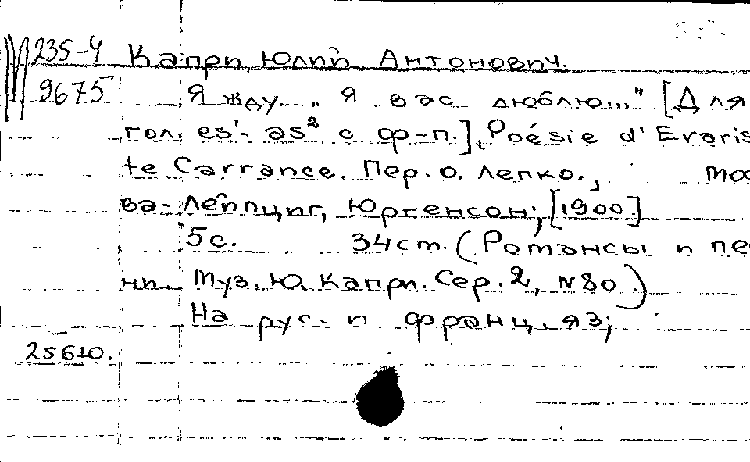 235-4 Капри, Юлий Антонович.
9675 Я жду... "Я вас люблю..." [Для
гол. es¹-as² с ф-п.]. Poésie d'Evaris
te Carrance. Пер. О. Лепко., Мос
ва-Лейпциг, Юргенсон, [1900]
5с. 34см. (Романсы и пе
ни. Муз. Ю. Капри. Сер. 2, N80.)
На рус. и франц. яз;
25610.